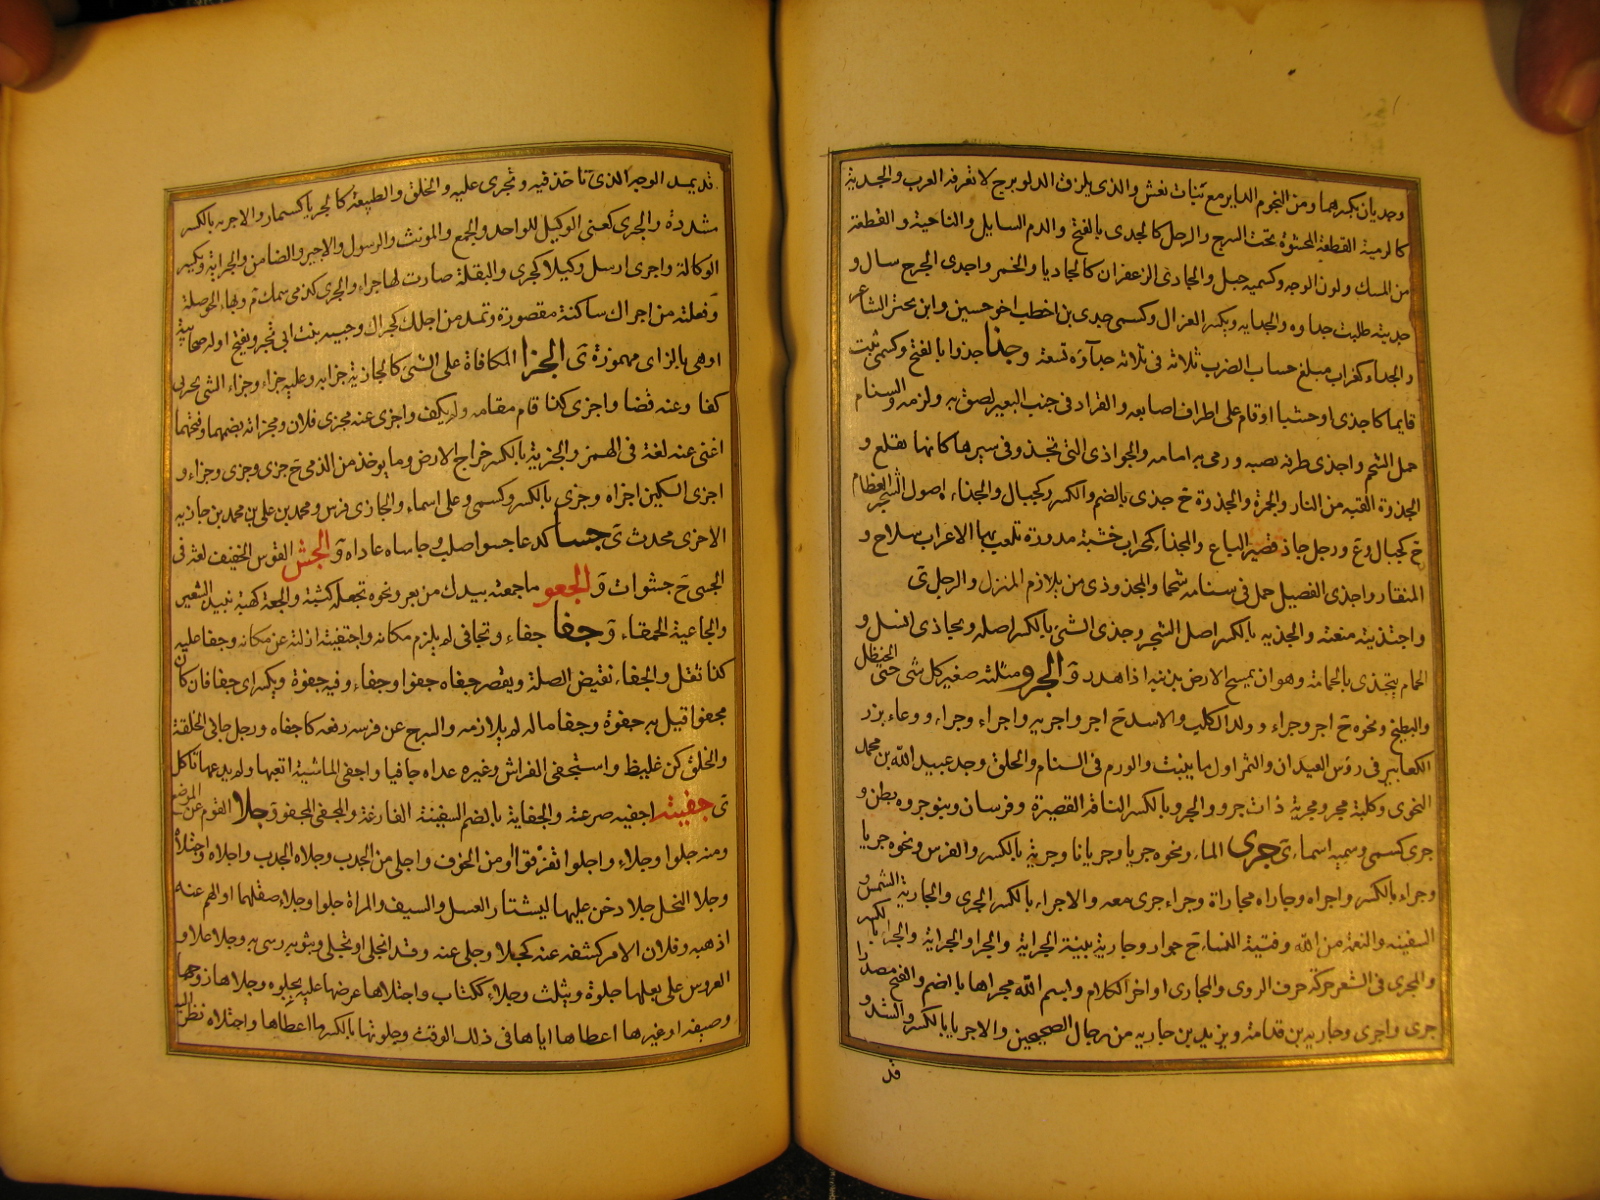 وجديان بكسرهما ومن النجوم الداير مع بنات نعش والذى يلزق الدلو برج لا تعرفه العرب والجدية
كالرمية القطعة المحشوة تحت السرج والرحل كالجدى بالفتح والدم السايل والناحية والقطعة
من المسك ولون الوجه وكسمية جبل والجادى الزعفران كالجاديا والخمر واجدى الجرح سال و
جديته طلبت جداوه والجداية ويكسر الغزال وكسمى جدى بن اخطب اخو حسين وابن بحتر الشاعر
والجداء كغراب مبلغ حساب الضرب ثلاثة فى ثلاثة جداؤه تسعة و جذا جذوا بالفتح وكسمى ثبت
قايما كاجذى او جثيا او قام على اطراف اصابعه والقراد فى جنب البعير لصق به ولزمه والسنام
حمل الشحم واجذى طرفه نصبه ورمى به امامه والجواذى التى تجذو فى سيرها كانها تقلع و
الجذوة القبسة من النار والجمرة والجذوة ج جذى بالضم والكسر وكجبال والجذاء اصول الشجر العظام
ج كجبال و ع ورجل جاذ قصير الباع والمجذا كمحراب خشبة مدورة تلعب بها الاعراب سلاح و
المنقار واجذى الفصيل حمل فى سنامه شحما والمجذوذى من يلازم المنزل والرحل ى
واجتذيته منعته والجذية بالكسر اصل الشجر وجذى الشئ بالكسر اصله وتجاذى انسل و
الحمام يتجذى بالحمامة وهو ان يمسح الارض بذنبه اذا هدر و الجرو مثلثة صغير كل شئ حتى الحنظل
والبطيخ ونحوه ج اجر وجراء و ولد الكلب والاسد ج اجر واجرية واجراء وجراء و وعاء بزر
الكعابير فى رؤس العيدان والثمر اول ما ينبت والورم فى السنام والحلق وجد عبيد الله بن محمد
النحوى وكلبة مجر ومجرية ذات جرو والجروة بالكسر الناقة القصيرة وفرسان وبنو جروة بطن و
جرى كسمى وسمية اسماء ى جرى الماء ونحوه جريا وجريانا وجرية بالكسر والفرس ونحوه جريا
وجراء بالكسر واجراه وجاراه مجاراة وجراء جرى معه والاجراء بالكسر الجرى والجارية الشمس و
السفينة والنعمة من الله وفتية النساء ج جوار وجارية بينة الجراية والجرا والجراية والجراء بالكسر
والمجرى فى الشعر حركة حرف الروى والمجارى اواخر الكلام وبسم الله مجراها بالضم والفتح مصدرا
جرى واجرى وجارية بن قدامة ويزيد بن جارية من رجال الصحيحين والاجريا بالكسر والشد و
قد
قد يمد الوجه الذى تاخذ فيه وتجرى عليه والخلق والطبيعة كالجريا كسمار والاجرية بالكسر
مشددة والجرى كغنى الوكيل للواحد والجمع والمونث والرسول والاجير والضامن والجراية ويكسر
الوكالة واجرى ارسل وكيلا كجرى والبقلة صارت لها جراء والجرى كذمى سمك م وبهاء الحوصلة
وفعلته من اجراك ساكنة مقصورة وتمد من اجلك كجراك وحبيبة بنت ابى تجراة ويفتح اوله صحابية
او هى بالزاى مهموزة ى الجزا المكافاة على الشئ كالجازية جزابه وعليه جزاء وجزاء الشئ يجزى
كفا وعنه قضا واجزى كذا قام مقامه ولم يكف واجزى عنه مجزى فلان ومجزاته بضمهما وفتحهما
اغنى عنه لغة فى الهمز والجزية بالكسر خراج الارض وما يوخذ من الذمى ج جزى وجزى وجزاء و
اجزى السكين اجزاه وجزى بالكسر وكسمى وعلى اسماء والجازى فرس ومحمد بن على بن محمد بن جازية
الاخرى محدث ى جسا كدعا جسوا صلب وجاساه عاداه و الجش القوس الخفيف لغة فى
الجشئ ج جشوات و الجعو ما جمعته بيدك من بعر ونحوه تجعله كثبة والجعة كهبة نبيذ الشعير
والجاعية الحمقاء و جفا جفاء وتجافى لم يلزم مكانه واجتفيته ازلته عن مكانه وجفا عليه
كذا ثقل والجفاء نقيض الصلة ويقصر جفاه جفوا وجفاء وفيه جفوة ويكسر اى جفا فان كان
مجفوا قيل به جفوة وجفا ماله لم يلازمه والسرج عن فرسه رفعه كاجفاه ورجل جافى الخلقة
والخلق كز غليظ واستجفى الفراش وغيره عداه جافيا واجفى الماشية اتعبها ولم يدعها تاكل
ى جفيته اجفيه صرعته والجفاية بالضم السفينة الفارغة والمجفى المجفو و جلا القوم عن الموضع
ومنه جلوا وجلاء واجلوا تفرقوا او من الخوف واجلى من الجدب وجلاه الجدب واجلاه واجتلاه
وجلا النحل جلا دخن عليها ليشتار العسل والسيف والمراة جلوا وجلاء صقلهما او الهم عنه
اذهبه وفلان الامر كشفه عنه كجلا وجلى عنه وقد انجلى او تجلى وبثوبه رمى به وجلا علا و
العروس على بعلها جلوة ويثلث وجلاء ككتاب واجتلاها عرضها عليه مجلوة وجلاها زوجها
وصيفة او غيرها اعطاها اياها فى ذلك الوقت وجلوتها بالكسر ما اعطاها واجتلاه نظر اليه